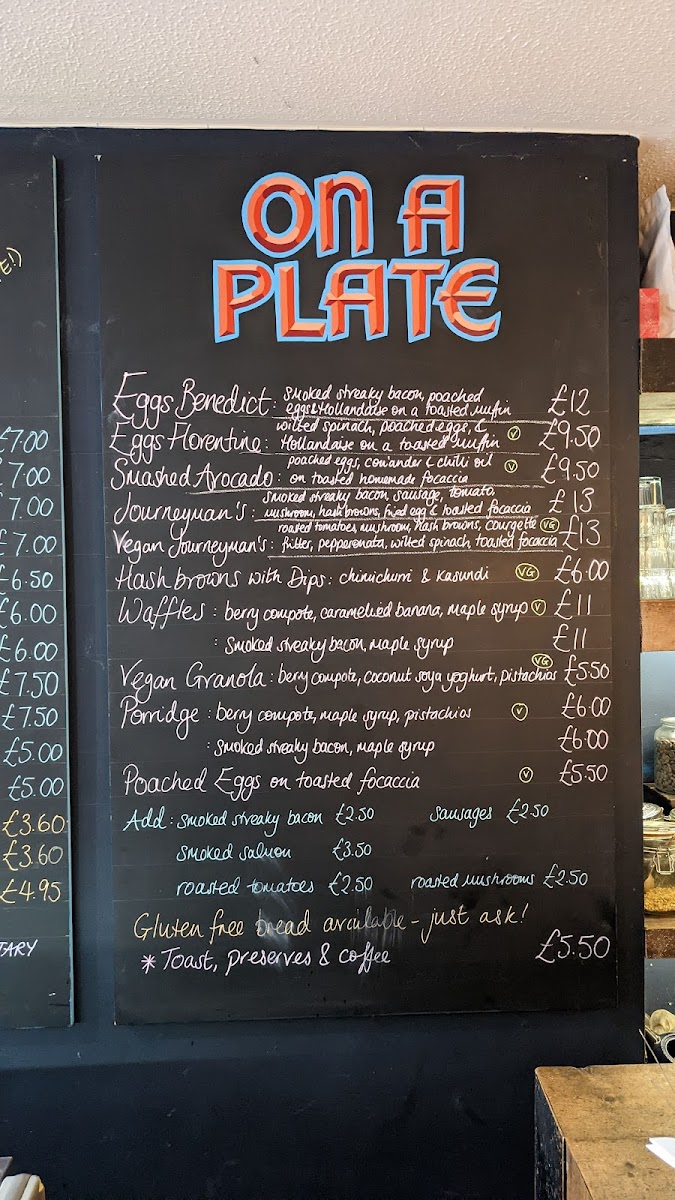 ON A
PLATE
Eggs Benedict: Smoked streaky bacon, poached
eggs & Hollandaise on a toasted muffin £12
Eggs Florentine: wilted spinach, poached eggs, &
Hollandaise on a toasted muffin V £9.50
Smashed Avocado: poached eggs, coriander & chilli oil
on toasted homemade focaccia V £9.50
Journeyman's: smoked streaky bacon, sausage, tomato,
mushroom, hash browns, fried egg & toasted focaccia £13
Vegan Journeyman's: roasted tomatoes, mushroom, hash browns, courgette VG
fritter, pepperonata, wilted spinach, toasted focaccia £13
Hash browns with Dips: chimichurri & Kasundi VG £6.00
Waffles: berry compote, caramelised banana, maple syrup V £11
: Smoked streaky bacon, maple syrup £11
Vegan Granola: berry compote, coconut soya yoghurt, pistachios VG £5.50
Porridge: berry compote, maple syrup, pistachios V £6.00
: Smoked streaky bacon, maple syrup £6.00
Poached Eggs on toasted focaccia V £5.50
Add: smoked streaky bacon £2.50 sausages £2.50
smoked salmon £3.50
roasted tomatoes £2.50 roasted mushrooms £2.50
Gluten free bread available - just ask!
* Toast, preserves & coffee £5.50
£7.00
£7.00
7.00
£7.00
£6.50
£6.00
£6.00
£7.50
£7.50
£5.00
£5.00
£3.60
£3.60
£4.95